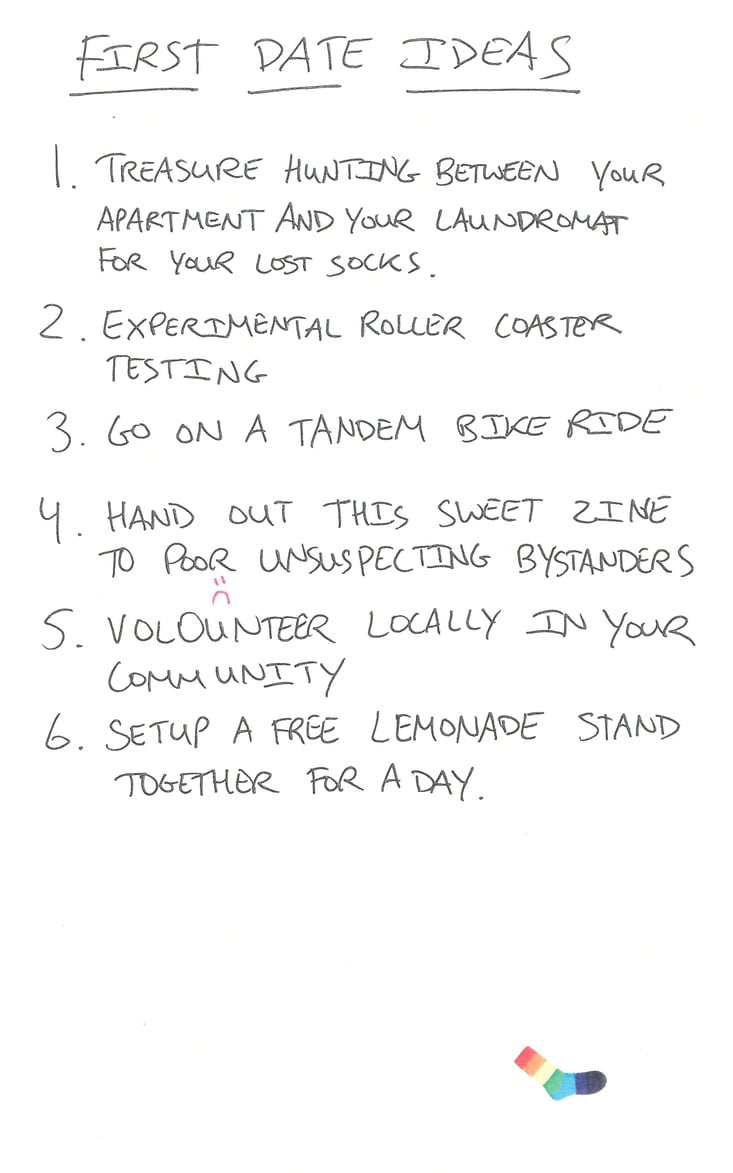 FIRST DATE IDEAS
1. TREASURE HUNTING BETWEEN YOUR
APARTMENT AND YOUR LAUNDROMAT
FOR YOUR LOST SOCKS.
2. EXPERIMENTAL ROLLER COASTER
TESTING
3. GO ON A TANDEM BIKE RIDE
4. HAND OUT THIS SWEET ZINE
TO POOR UNSUSPECTING BYSTANDERS
5. VOLOUNTEER LOCALLY IN YOUR
COMMUNITY
6. SETUP A FREE LEMONADE STAND
TOGETHER FOR A DAY.